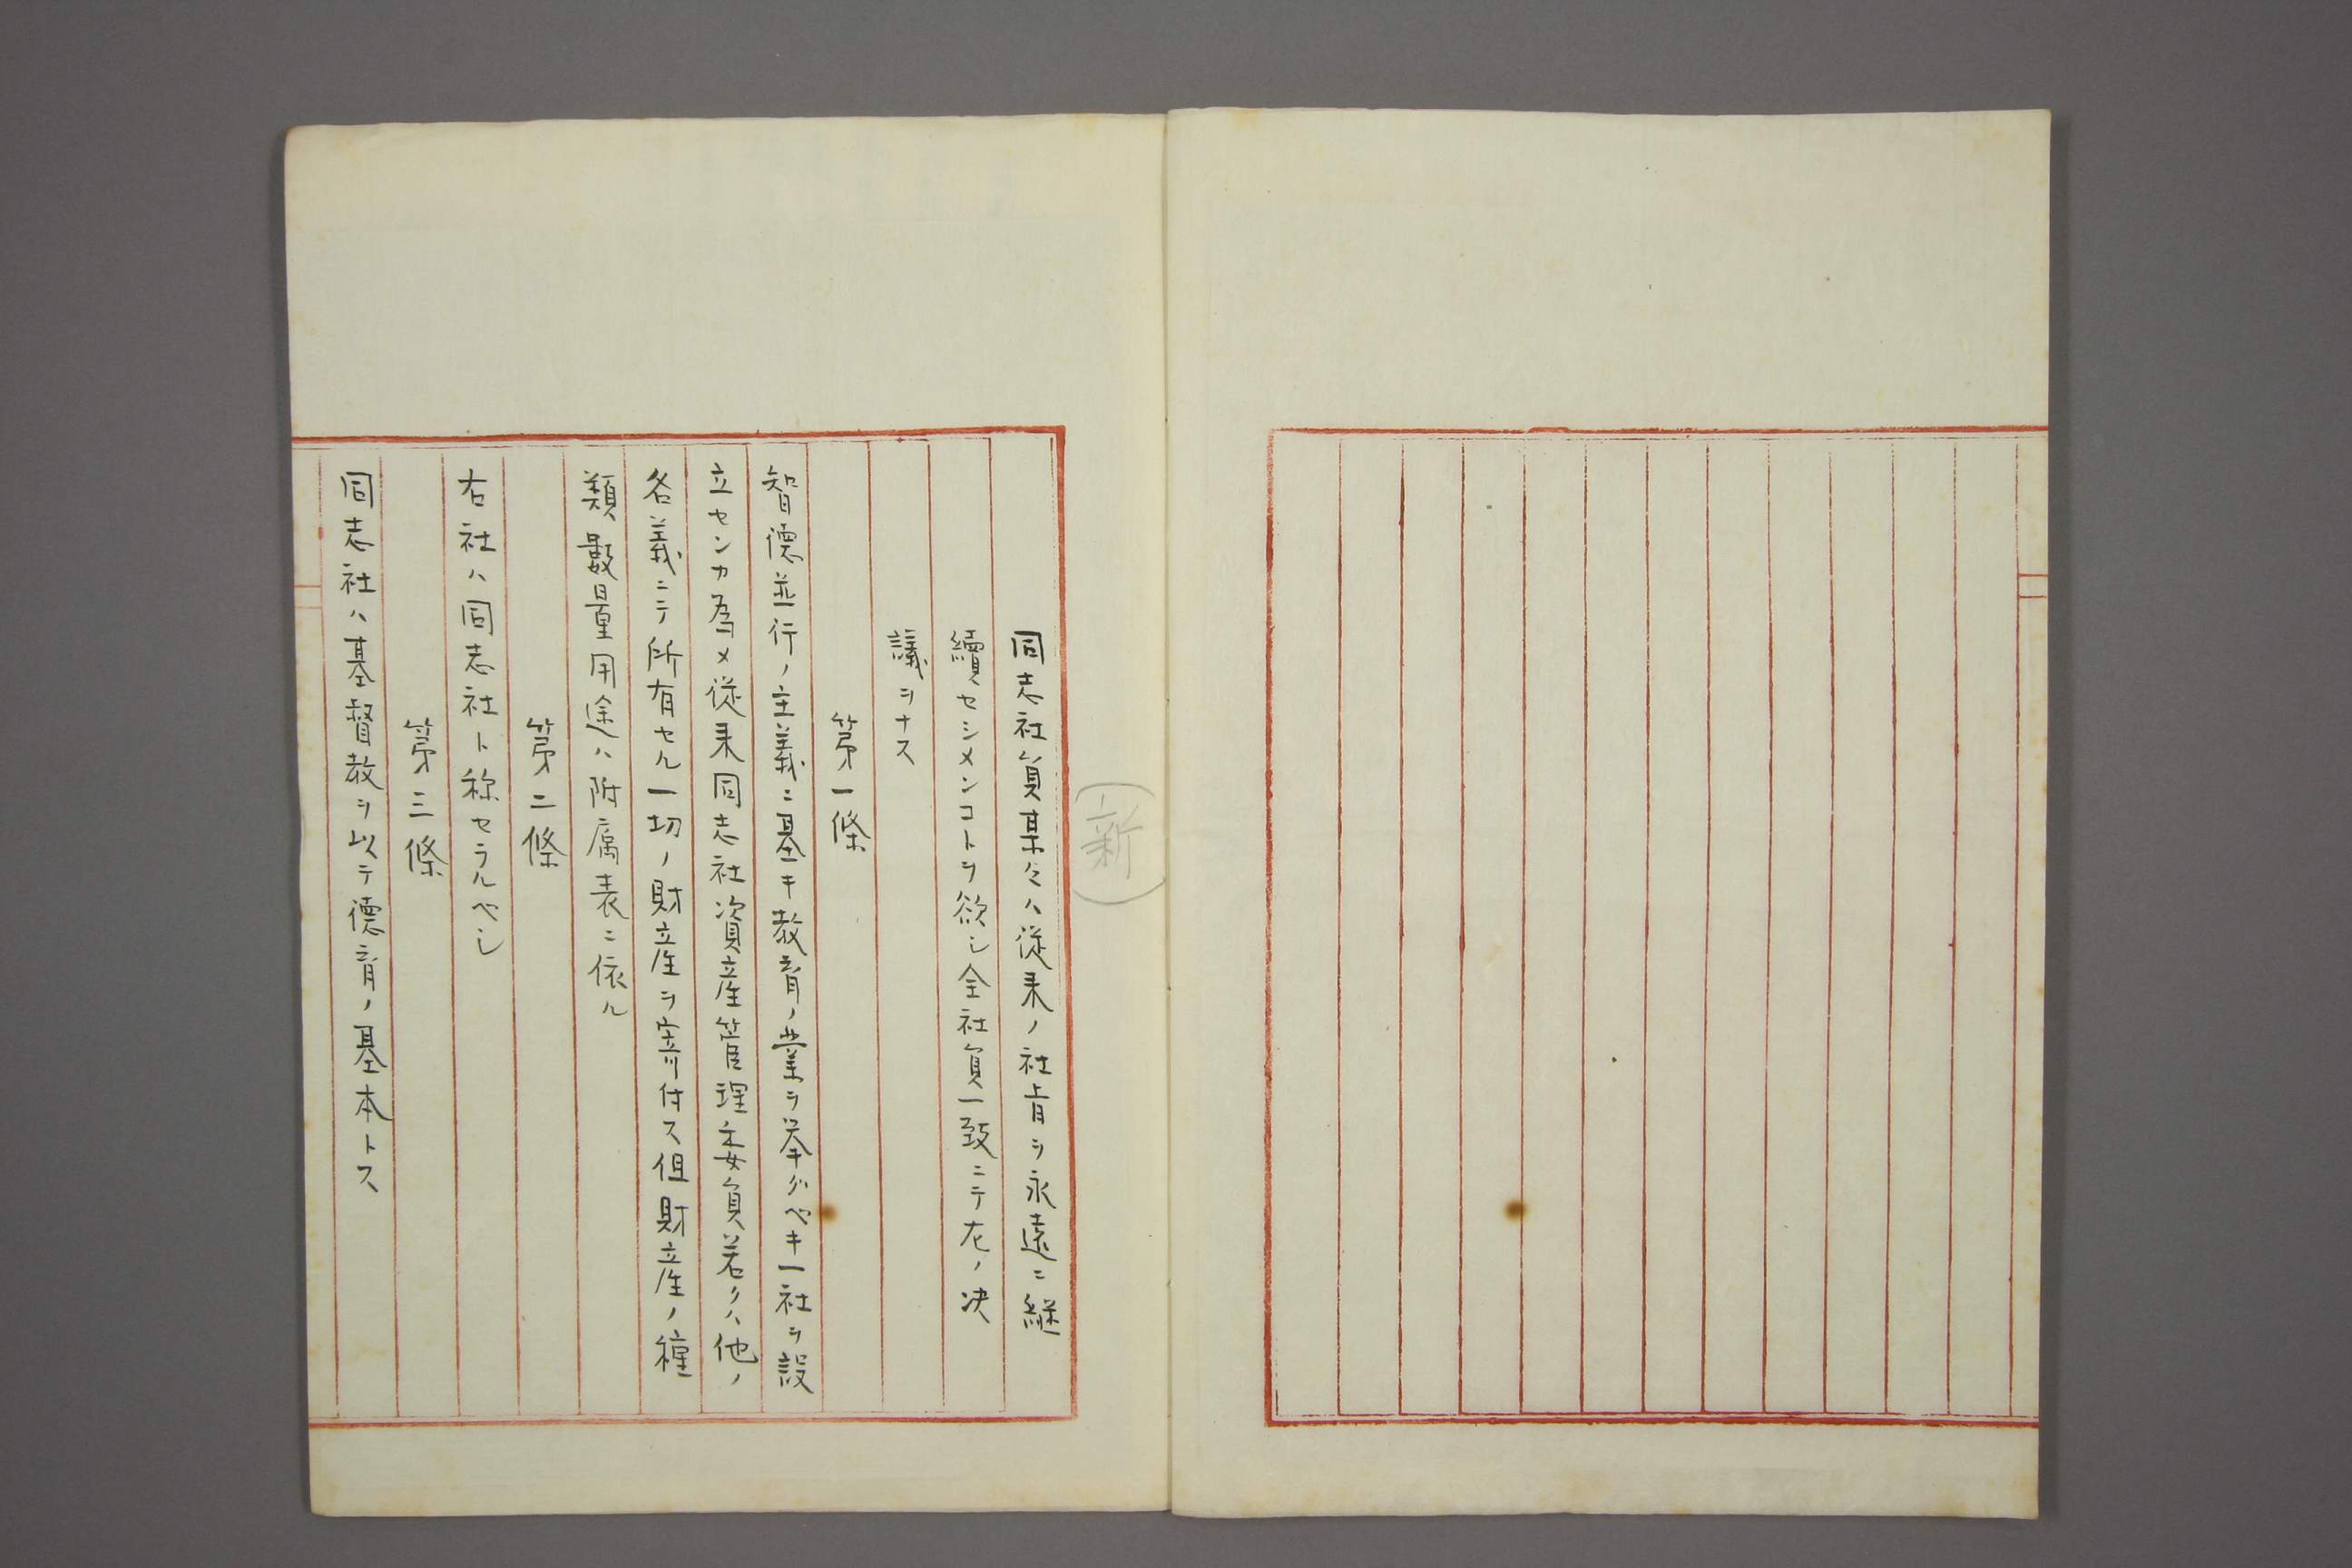 （新）
同志社員某々ハ従来ノ社旨ヲ永遠ニ継
續セシメンコトヲ欲シ全社員一致ニテ左ノ决
議ヲナス
第一條
智德並行ノ主義ニ基キ教育ノ業ヲ挙グベキ一社ヲ設
立センカ為メ従来同志社資産管理委員若クハ他ノ
名義ニテ所有セル一切ノ財産ヲ寄付ス但財産ノ種
類數量用途ハ附属表ニ依ル
第二條
右社ハ同志社ト称セラルベシ
第三條
同志社ハ基督教ヲ以テ德育ノ基本トス